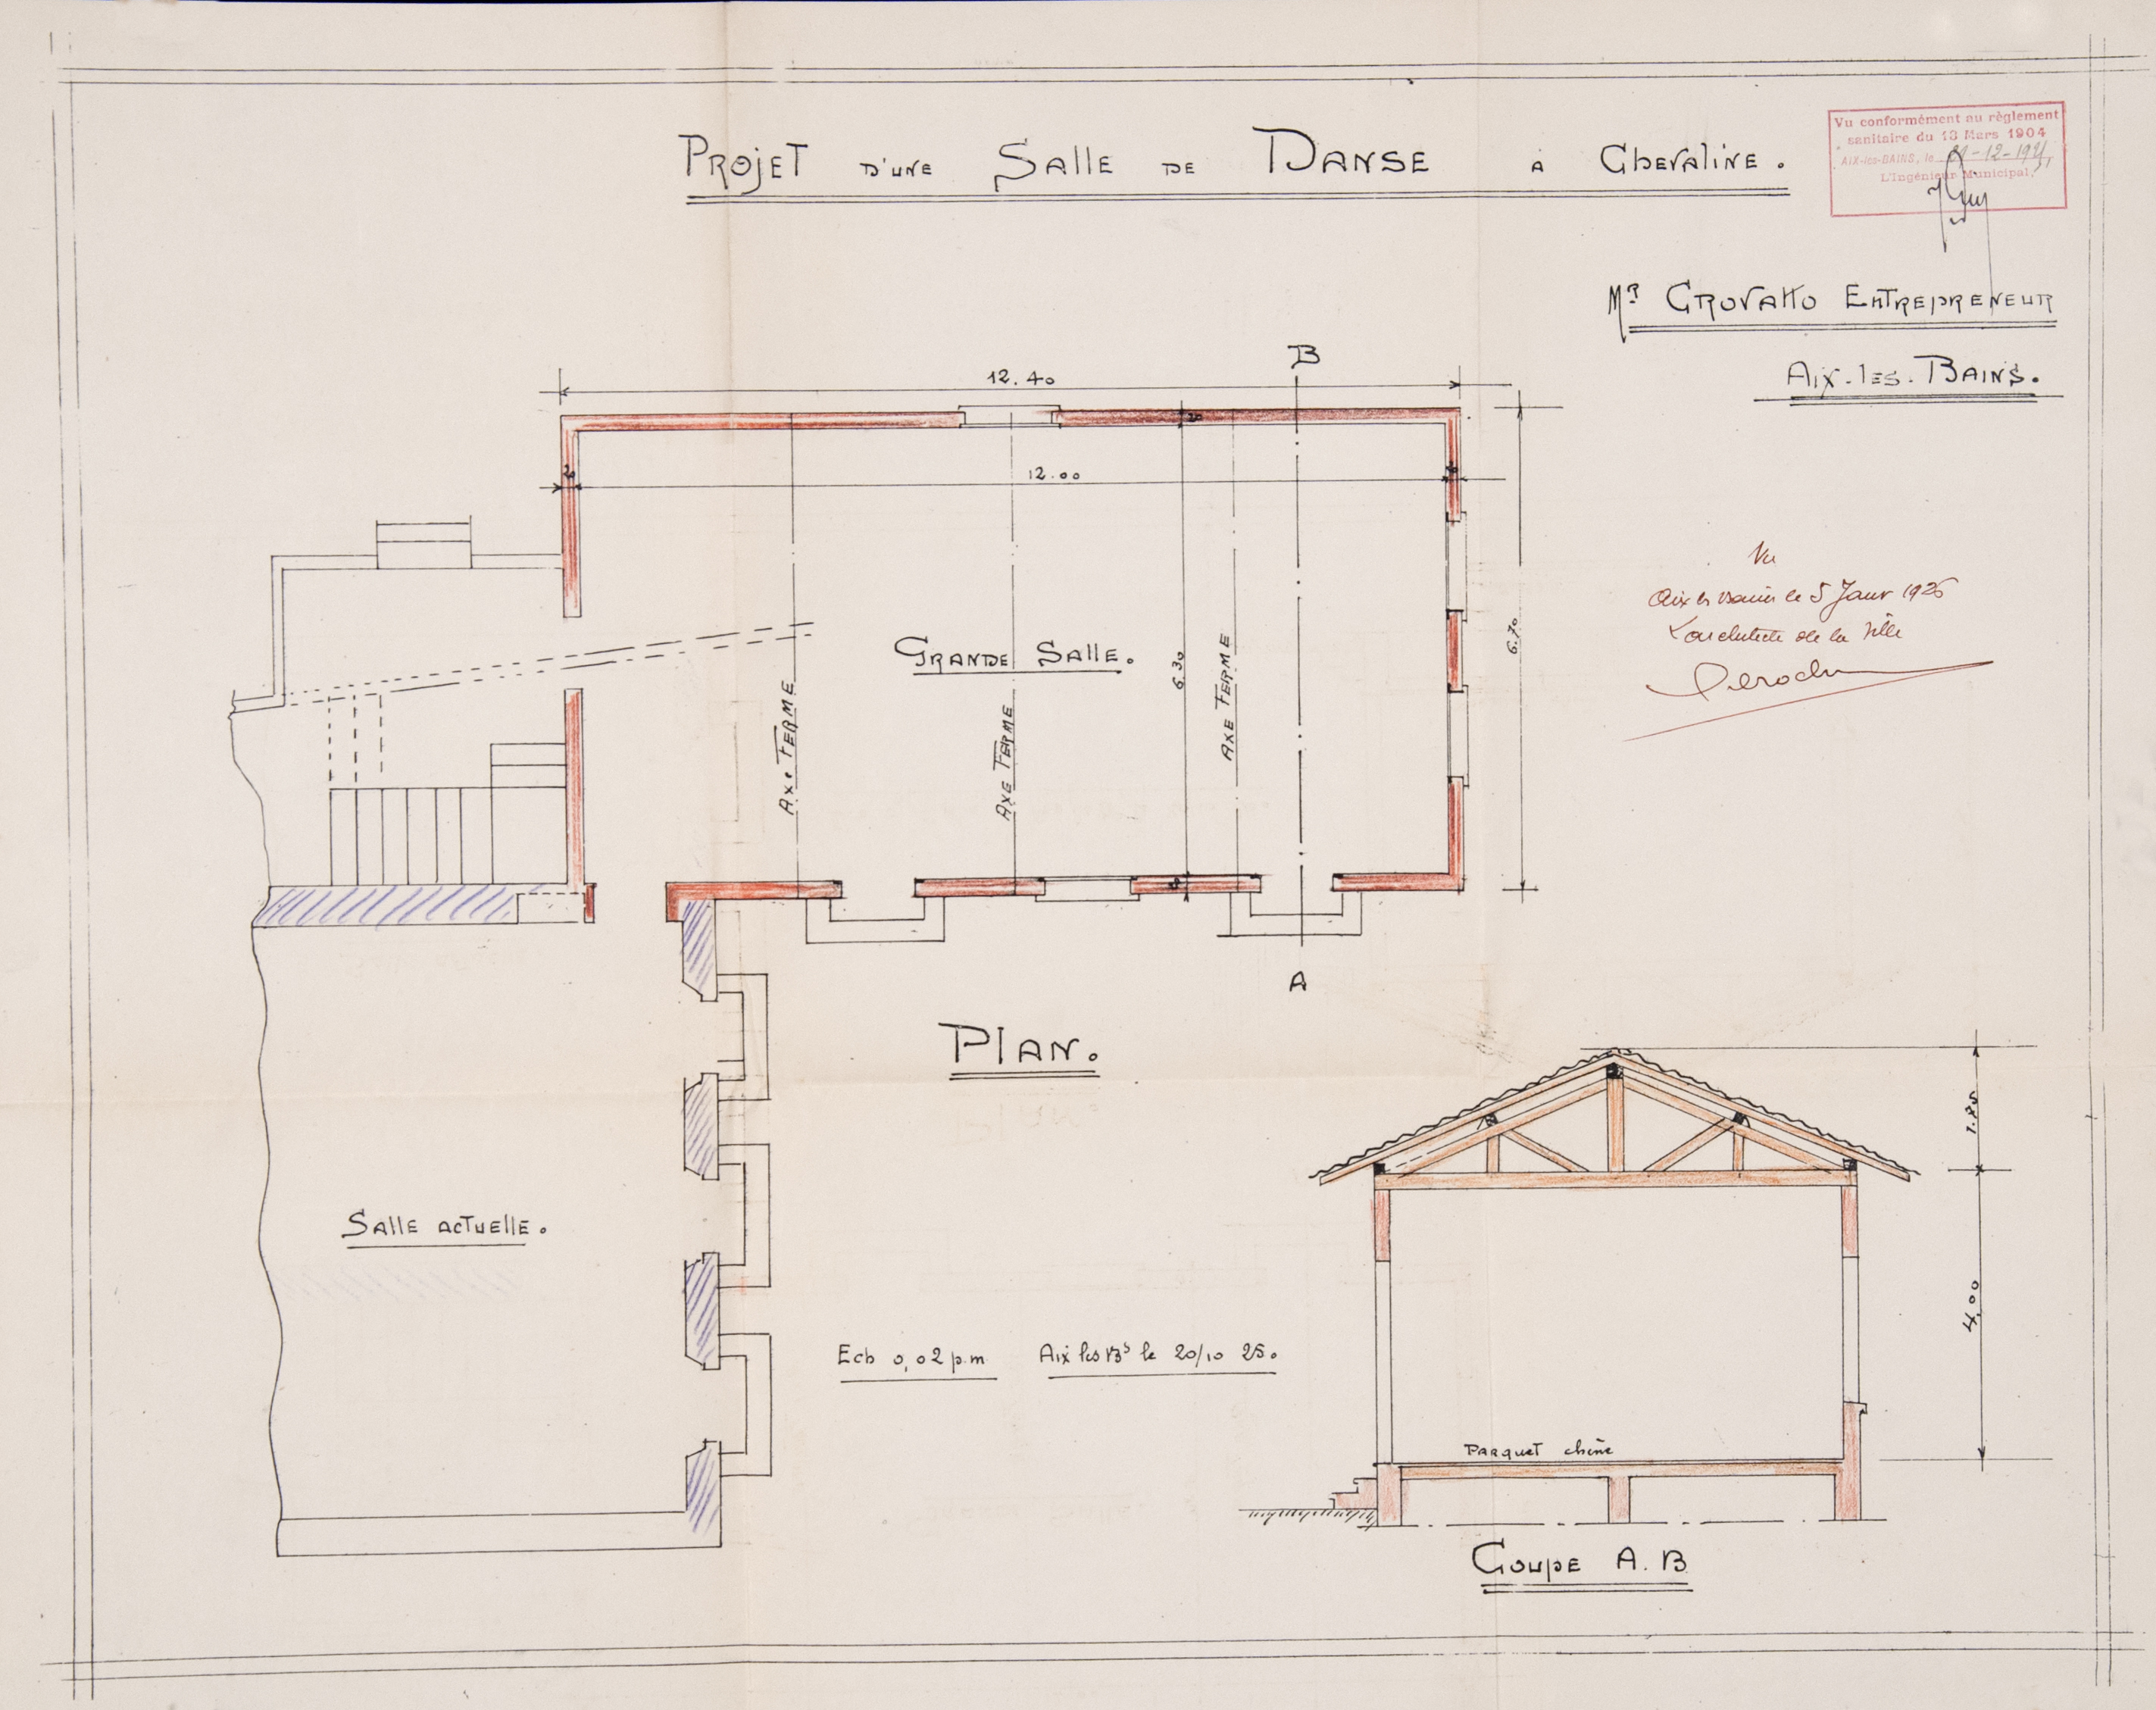 PROJET D'UNE SALLE DE DANSE A CHEVALINE.
Vu conformément au règlement
sanitaire du 13 Mars 1904
AIX-les-BAINS, le 21-12-192
L'Ingénieur Municipal,
Mr CROVATTO ENTREPRENEUR
AIX-LES-BAINS.
B
12.40
20
20
20
12.00
Vu
Aix les Bains le 5 Janv 1926
L'architecte de la Ville
GRANDE SALLE.
6.30
6.70
AXE FERME
AXE FERME
AXE FERME
20
A
PLAN.
SALLE ACTUELLE.
1.85
4.00
Ech 0,02 p.m. Aix les Bs le 20/10 25.
PARQUET chêne
COUPE A.B